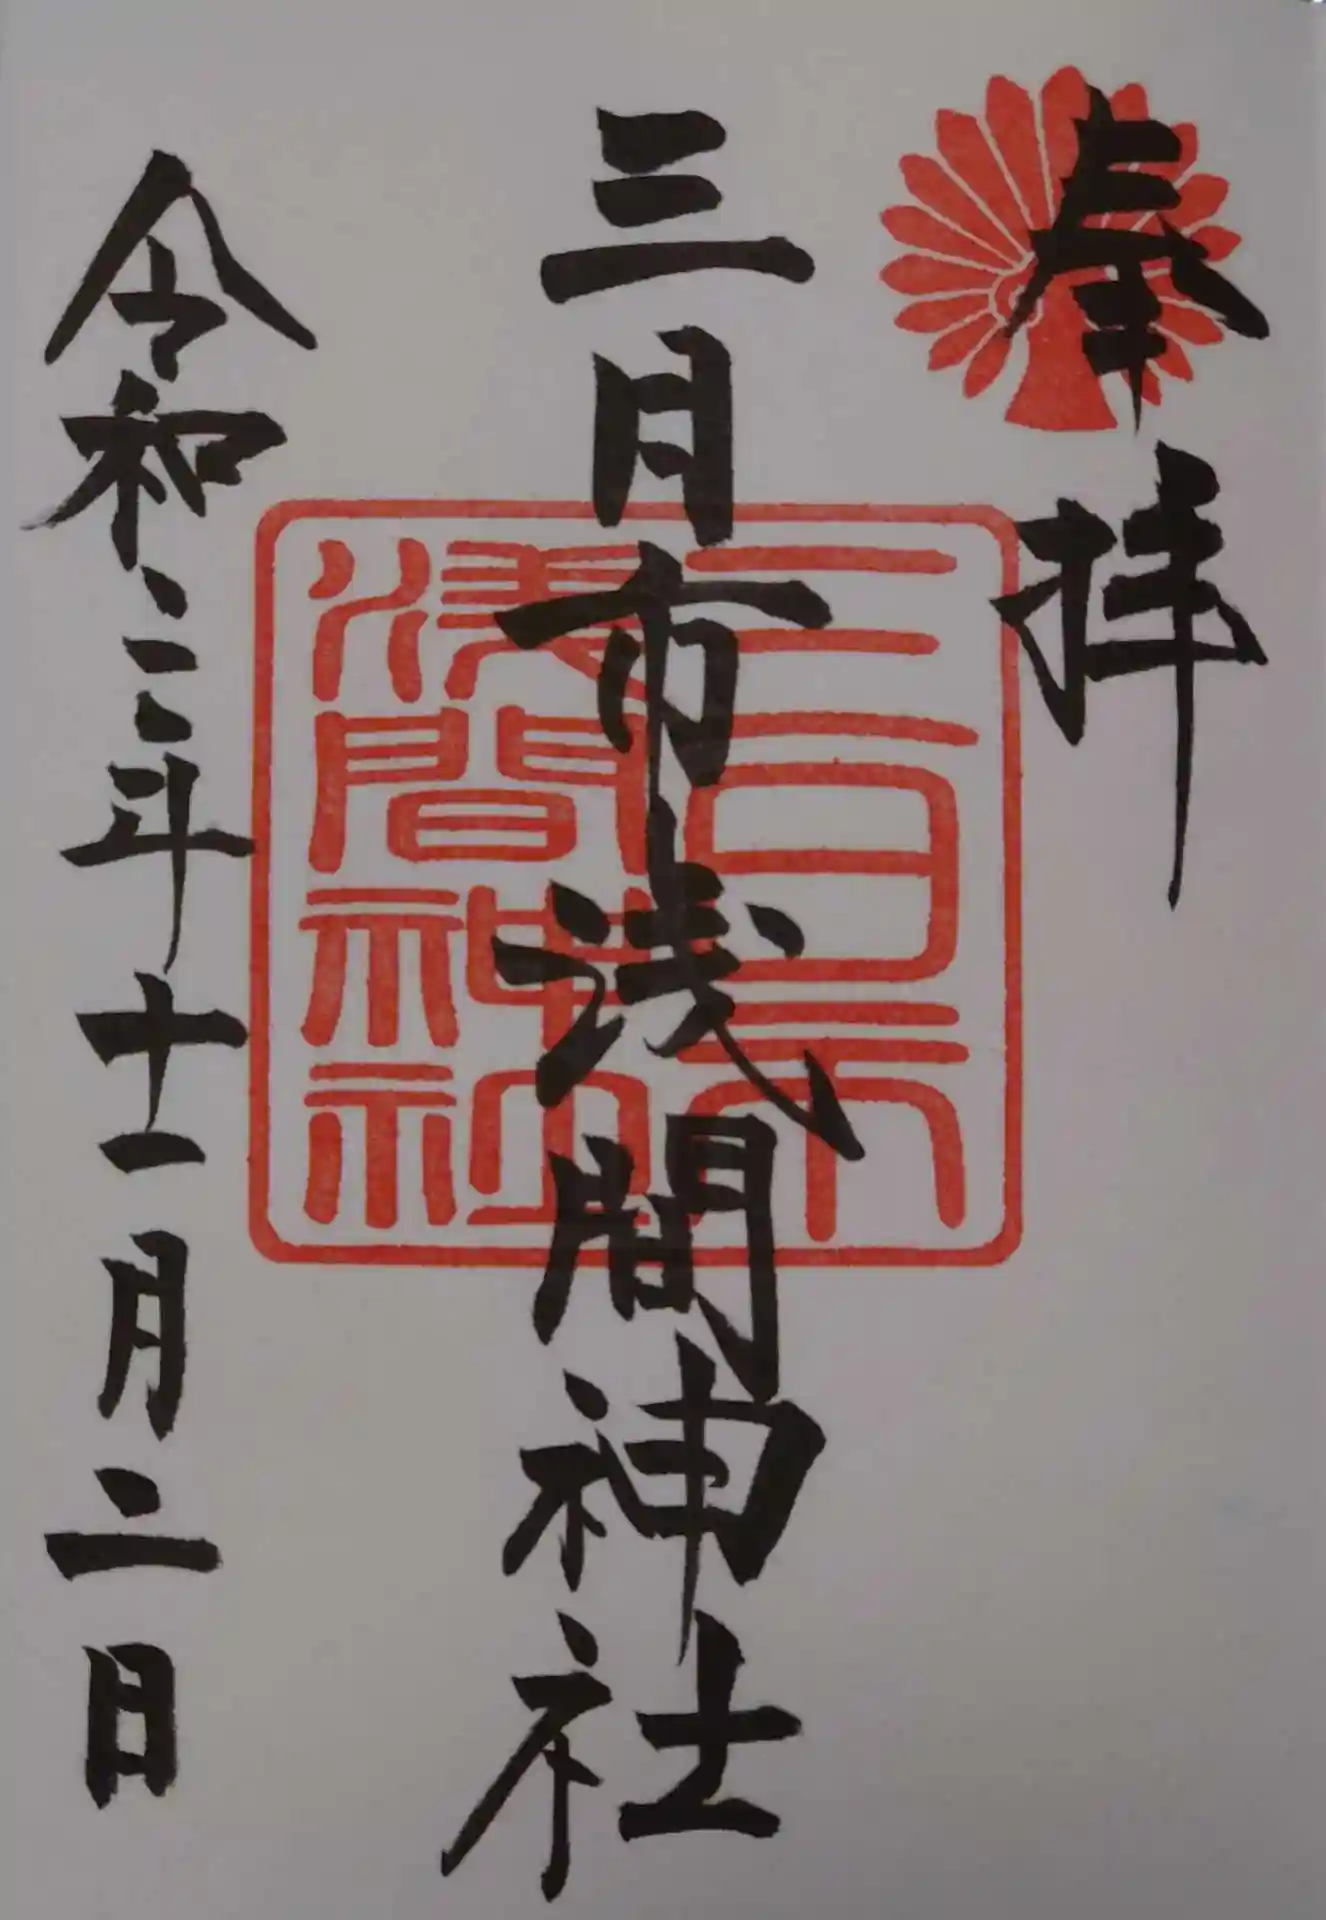 奉拝
三日市浅間神社
令和三年十一月二日
三日市
浅間神社